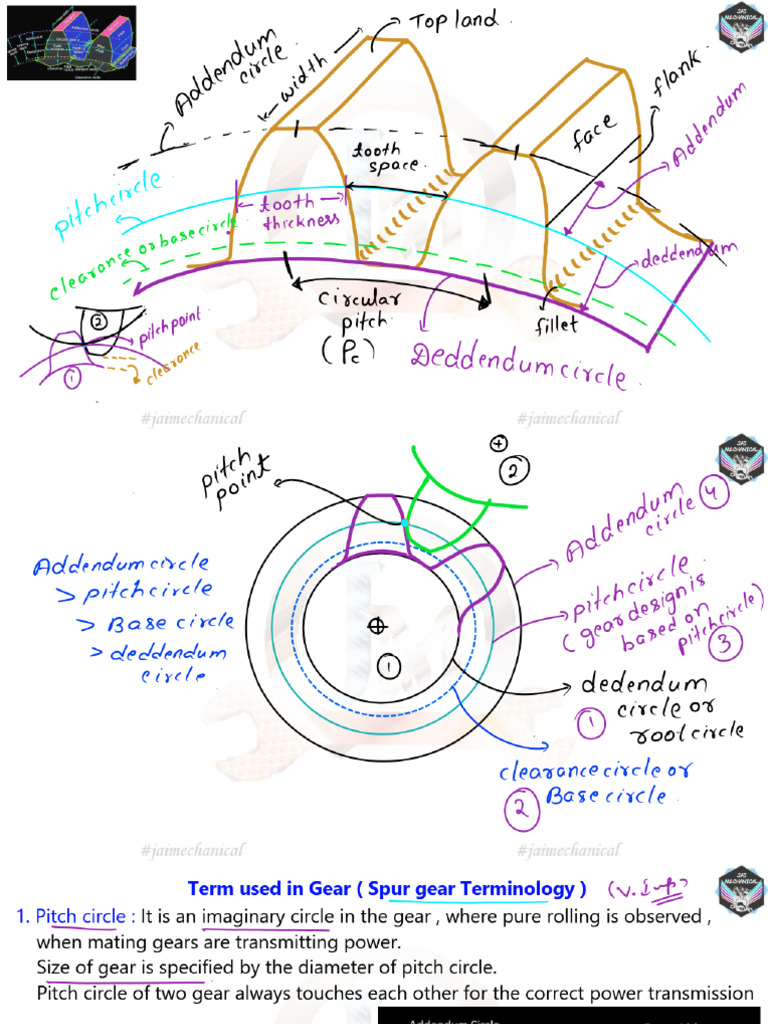 Top land
JAI
MECHANICAL
Addendum
circle
width
tooth
space
face
flank
Addendum
pitch circle
tooth
thickness
clearance or base circle
deddendum
② pitch point
①
clearance
circular
pitch
(Pc)
fillet
Deddendum circle
#jaimechanical
#jaimechanical
JAI
MECHANICAL
pitch
point
+
②
Addendum circle
> pitch circle
> Base circle
> deddendum
circle
Addendum
circle ④
pitch circle
(gear design is
based on
pitch circle)
③
①
dedendum
circle or
root circle
①
clearance circle or
② Base circle
#jaimechanical
#jaimechanical
JAI
MECHANICAL
Term used in Gear ( Spur gear Terminology ) (V. Imp)
1. Pitch circle : It is an imaginary circle in the gear , where pure rolling is observed ,
when mating gears are transmitting power.
Size of gear is specified by the diameter of pitch circle.
Pitch circle of two gear always touches each other for the correct power transmission
Addendum Circle